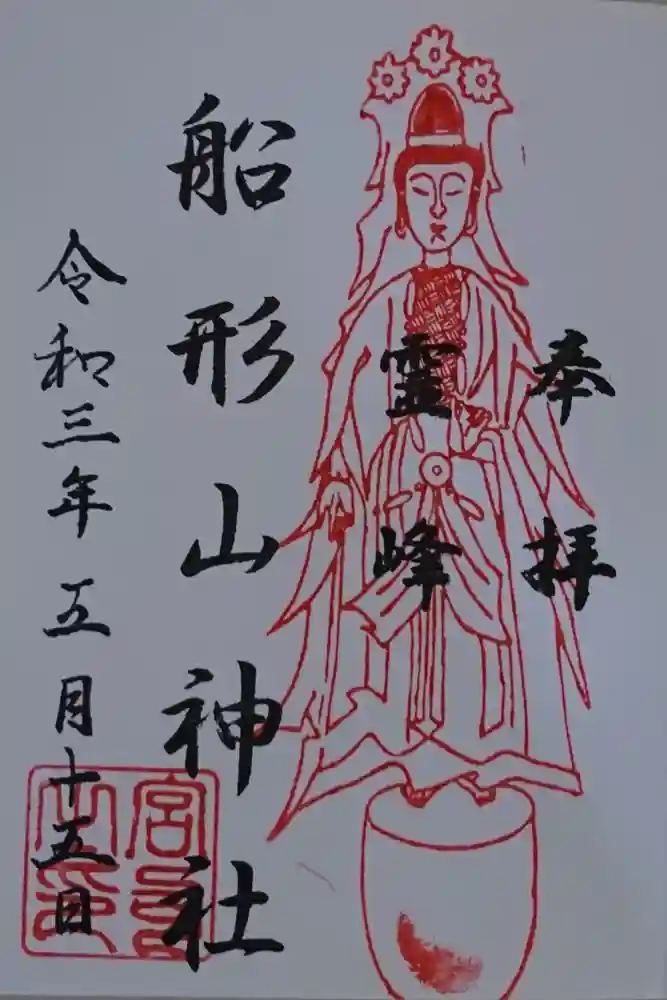 奉拝
霊峰
船形山神社
令和三年五月十五日